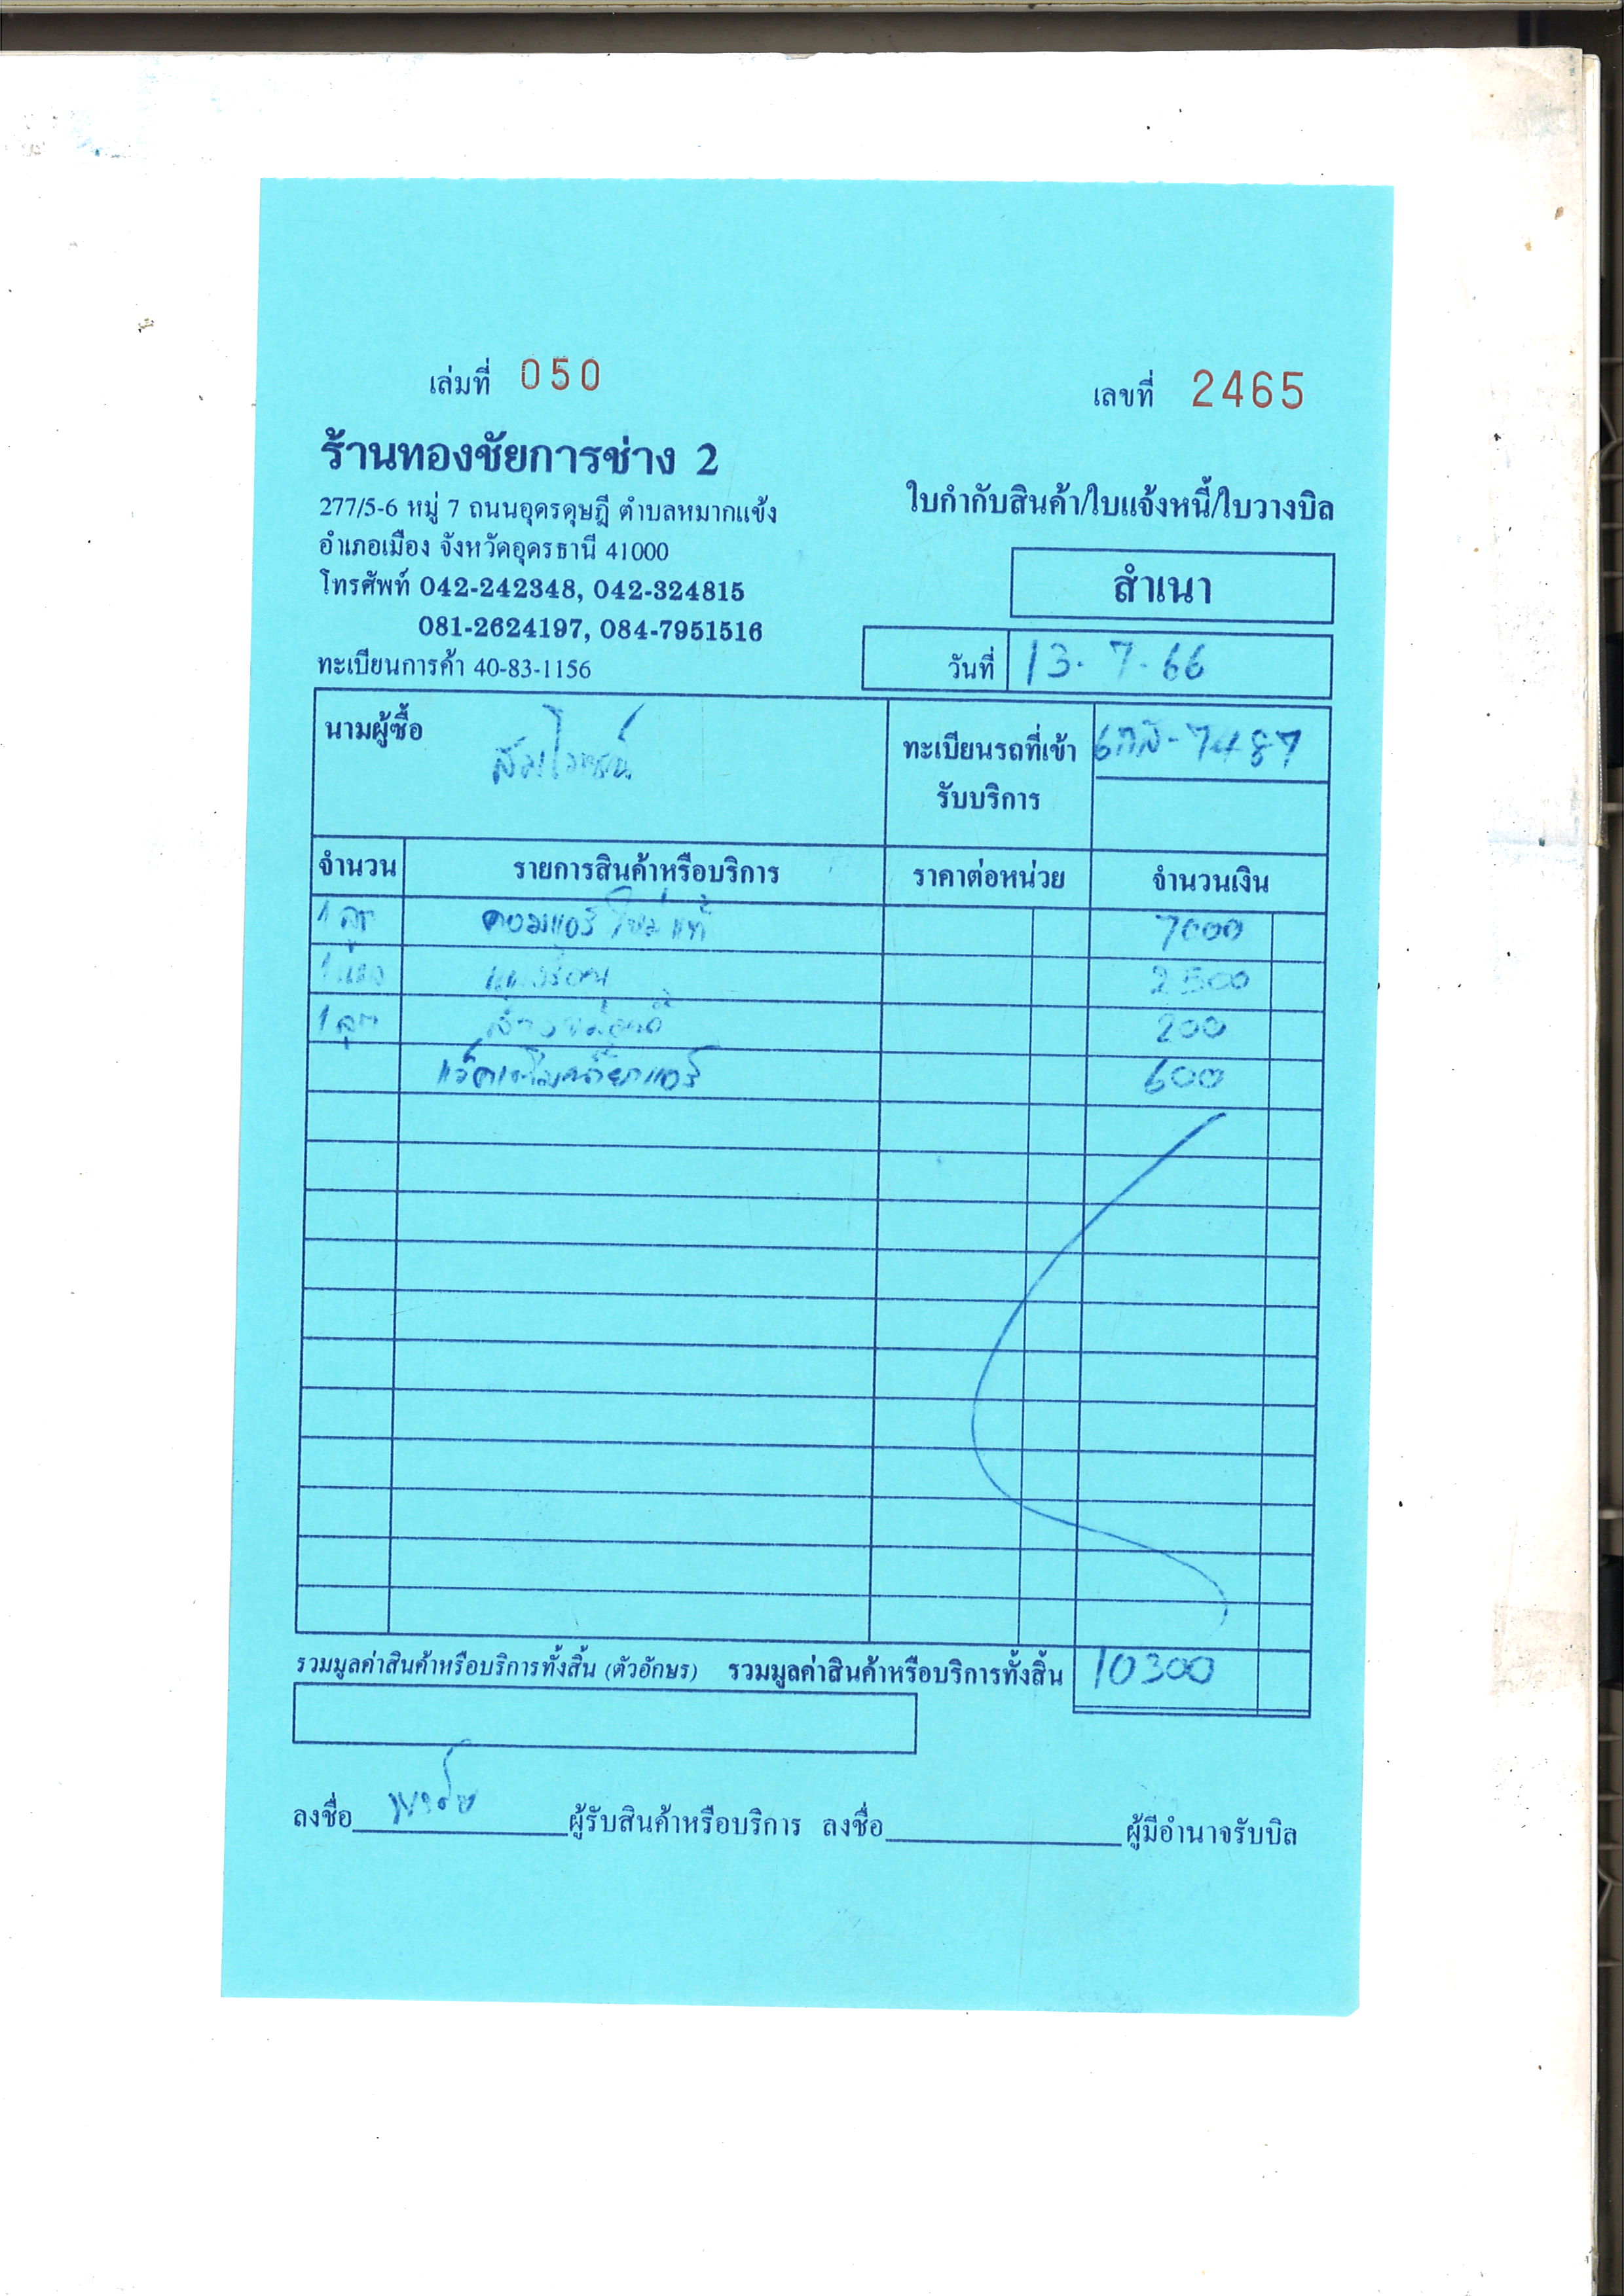 เล่มที่ 050
เลขที่ 2465
ร้านทองชัยการช่าง 2
277/5-6 หมู่ 7 ถนนอุดรดุษฎี ตำบลหมากแข้ง
อำเภอเมือง จังหวัดอุดรธานี 41000
โทรศัพท์ 042-242348, 042-324815
081-2624197, 084-7951516
ทะเบียนการค้า 40-83-1156
ใบกำกับสินค้า/ใบแจ้งหนี้/ใบวางบิล
สำเนา
วันที่ 13. 7. 66
นามผู้ซื้อ
ทะเบียนรถที่เข้า
รับบริการ
7487
จำนวน รายการสินค้าหรือบริการ ราคาต่อหน่วย จำนวนเงิน
1 ลูก คอมแอร์ ใหม่แท้ 7000
1 แผง แผงร้อน 2500
1 ลูก 200
แอร์ 600
รวมมูลค่าสินค้าหรือบริการทั้งสิ้น (ตัวอักษร) รวมมูลค่าสินค้าหรือบริการทั้งสิ้น 10300
ลงชื่อ ผู้รับสินค้าหรือบริการ ลงชื่อ ผู้มีอำนาจรับบิล